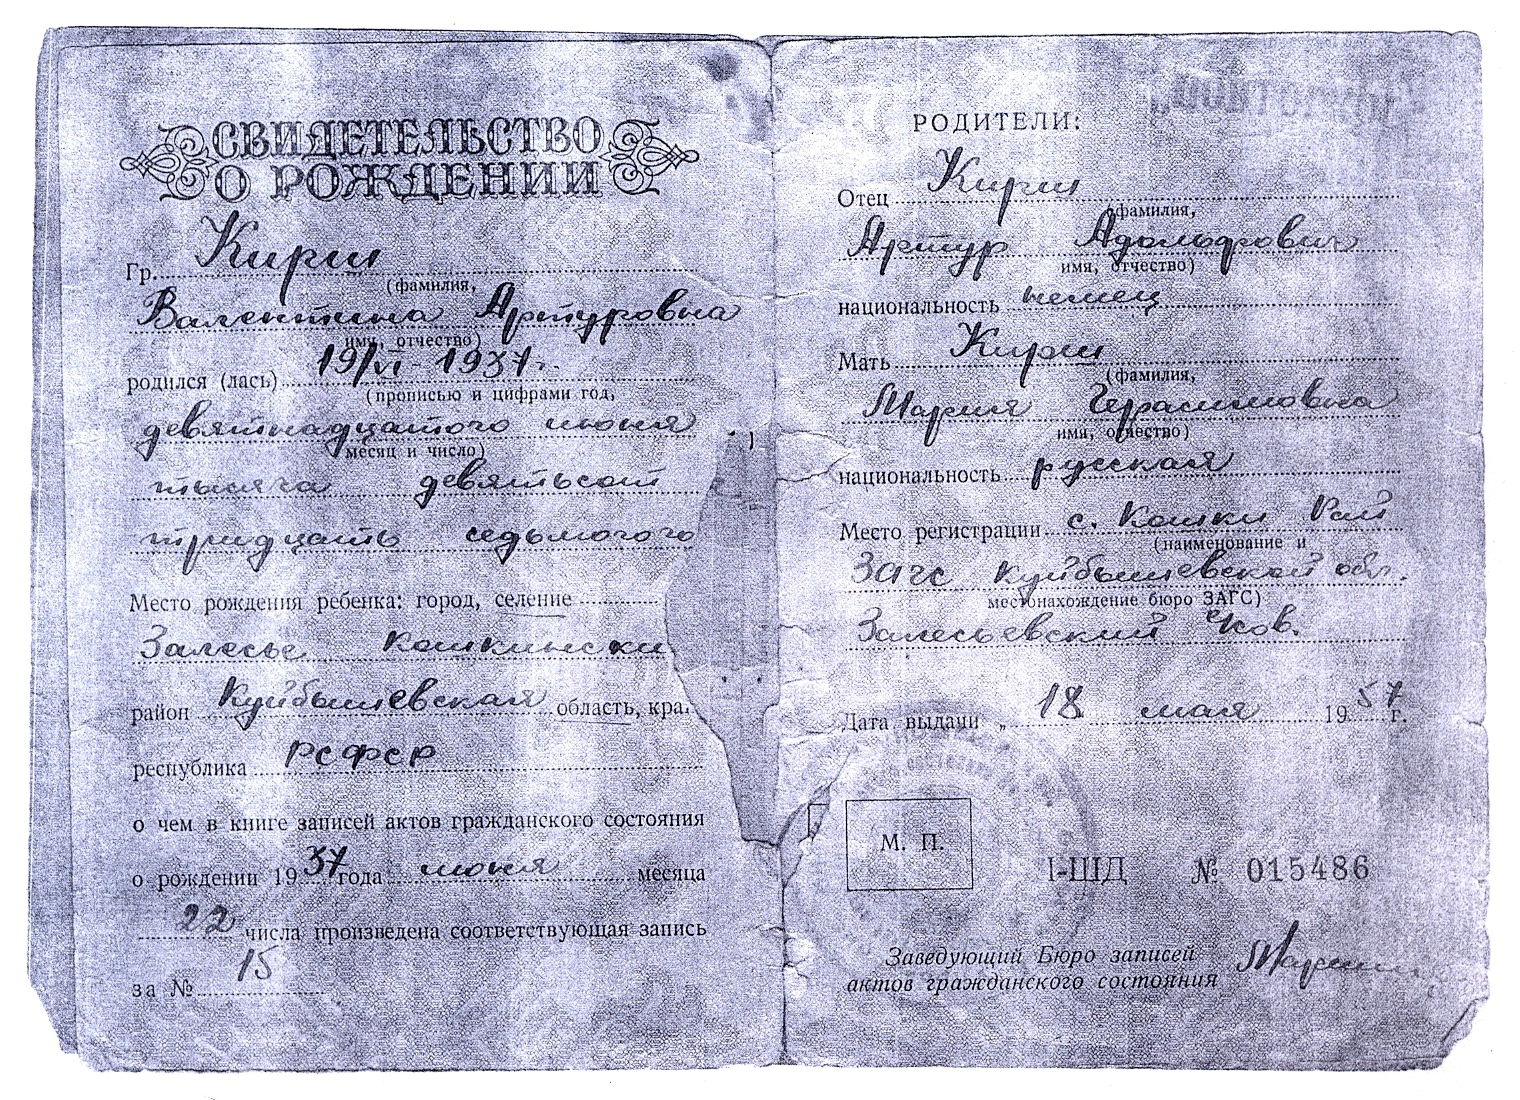 СВИДЕТЕЛЬСТВО
О РОЖДЕНИИ
Гр. Кирш
(фамилия,
Валентина Артуровна
имя, отчество)
родился (лась) 19/VI - 1937 г.
(прописью и цифрами год,
девятнадцатого июня
месяц и число)
тысяча девятьсот
тридцать седьмого го
Место рождения ребенка: город, селение
Залесье Кошкински
район Куйбышевская область, кра
республика РСФСР
о чем в книге записей актов гражданского состояния
о рождении 1937 года июня месяца
22 числа произведена соответствующая запись
за № 15
РОДИТЕЛИ:
Отец Кирш
(фамилия,
Артур Адольфович
имя, отчество)
национальность немец
Мать Кирш
(фамилия,
Мария Герасимовна
имя, отчество)
национальность русская
Место регистрации с. Кошки Рай
(наименование и
ЗАГС Куйбышевской обл.
местонахождение бюро ЗАГС)
Залесьевский
Дата выдачи „ 18 мая 1957 г.
М. П.
I-ШД № 015486
Заведующий Бюро записей
актов гражданского состояния